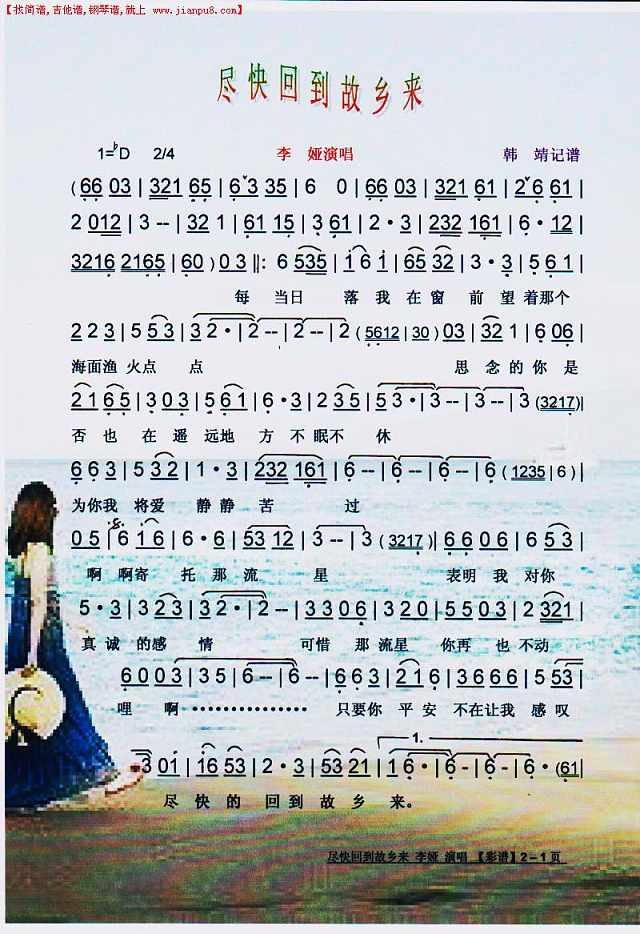 【找简谱,吉他谱,钢琴谱,就上 www.jianpu8.com】
尽快回到故乡来
1=♭D 2/4 李 娅演唱 韩 靖记谱
(66 03 | 321 65 | 6 3 35 | 6 0 | 66 03 | 321 61 | 2 6 61 |
2 012 | 3 -- | 32 1 | 61 15 | 3 61 | 2·3 | 232 161 | 6·12 |
3216 2165 | 60) 03 ‖: 6 535 | i 6 i | 65 32 | 3·3 | 5 61 |
每 当日 落 我 在 窗 前 望 着那个
2 2 3 | 5 53 | 32· | 2 -- | 2 -- | 2 -- | 2 (5612 | 30) 03 | 32 1 | 6 06 |
海面渔 火点 点 思 念 的 你 是
21 65 | 3 03 | 5 61 | 6·3 | 2 35 | 53· | 3 -- | 3 -- | 3 (3217) |
否 也 在 遥 远地 方 不 眠不 休
6 6 3 | 5 32 | 1·3 | 232 161 | 6 -- | 6 -- | 6 -- | 6 (1235 | 6) |
为你我 将爱 静静 苦 过
05 | 6 16 | 6·6 | 53 12 | 3 -- | 3 (3217) | 66 06 | 6 53 |
啊 啊寄 托 那 流 星 表明 我 对你
5·3 | 3 23 | 32· | 2 -- | 33 06 | 3 20 | 55 03 | 2 321 |
真 诚 的感 情 可惜 那 流星 你再 也 不动
6 003 | 3 35 | 6 -- | 6 -- | 6 63 | 2 21 | 3 66 | 5 53 |
哩 啊 ··············· 只要你 平 安 不在让我 感 叹
3 0i | i6 53 | 2·3 | 5 32 | 1.
尽 快 的 回 到 故 乡 来。
尽快回到故乡来 李娅 演唱 【彩谱】2－1页